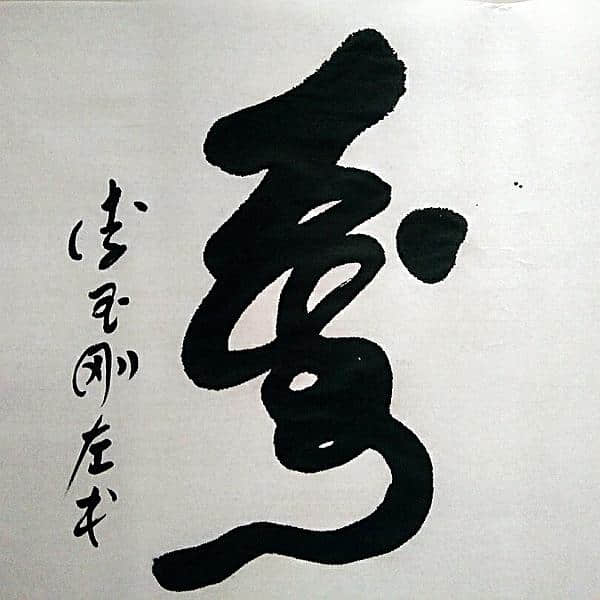 寿
玉刚左书